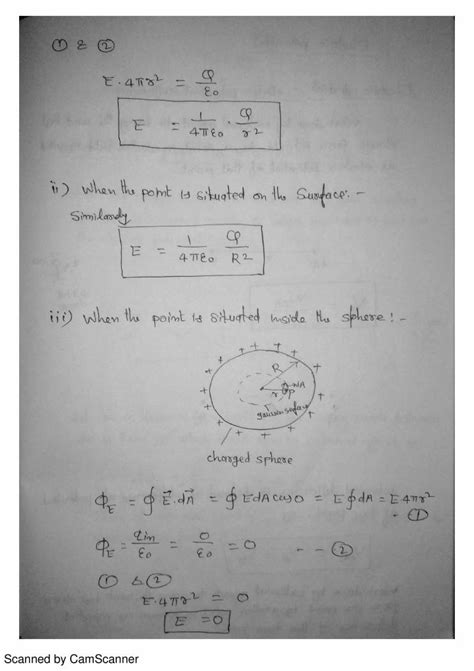 ① & ②
E.4πr² = Q/ε₀
E = 1/4πε₀ · Q/r2
ii) When the point is situated on the Surface: -
Similarly
E = 1/4πε₀ Q/R2
iii) When the point is situated inside the sphere: -
+ + + + + + + + + + + +
R
r P
gaussian surface
charged sphere
Φ_E = ∮ E⃗.dA⃗ = ∮ E dA cos 0 = E ∮ dA = E 4πr²
- ①
Φ_E = q_in/ε₀ = 0/ε₀ = 0 - - ②
① & ②
E.4πr² = 0
E = 0
Scanned by CamScanner